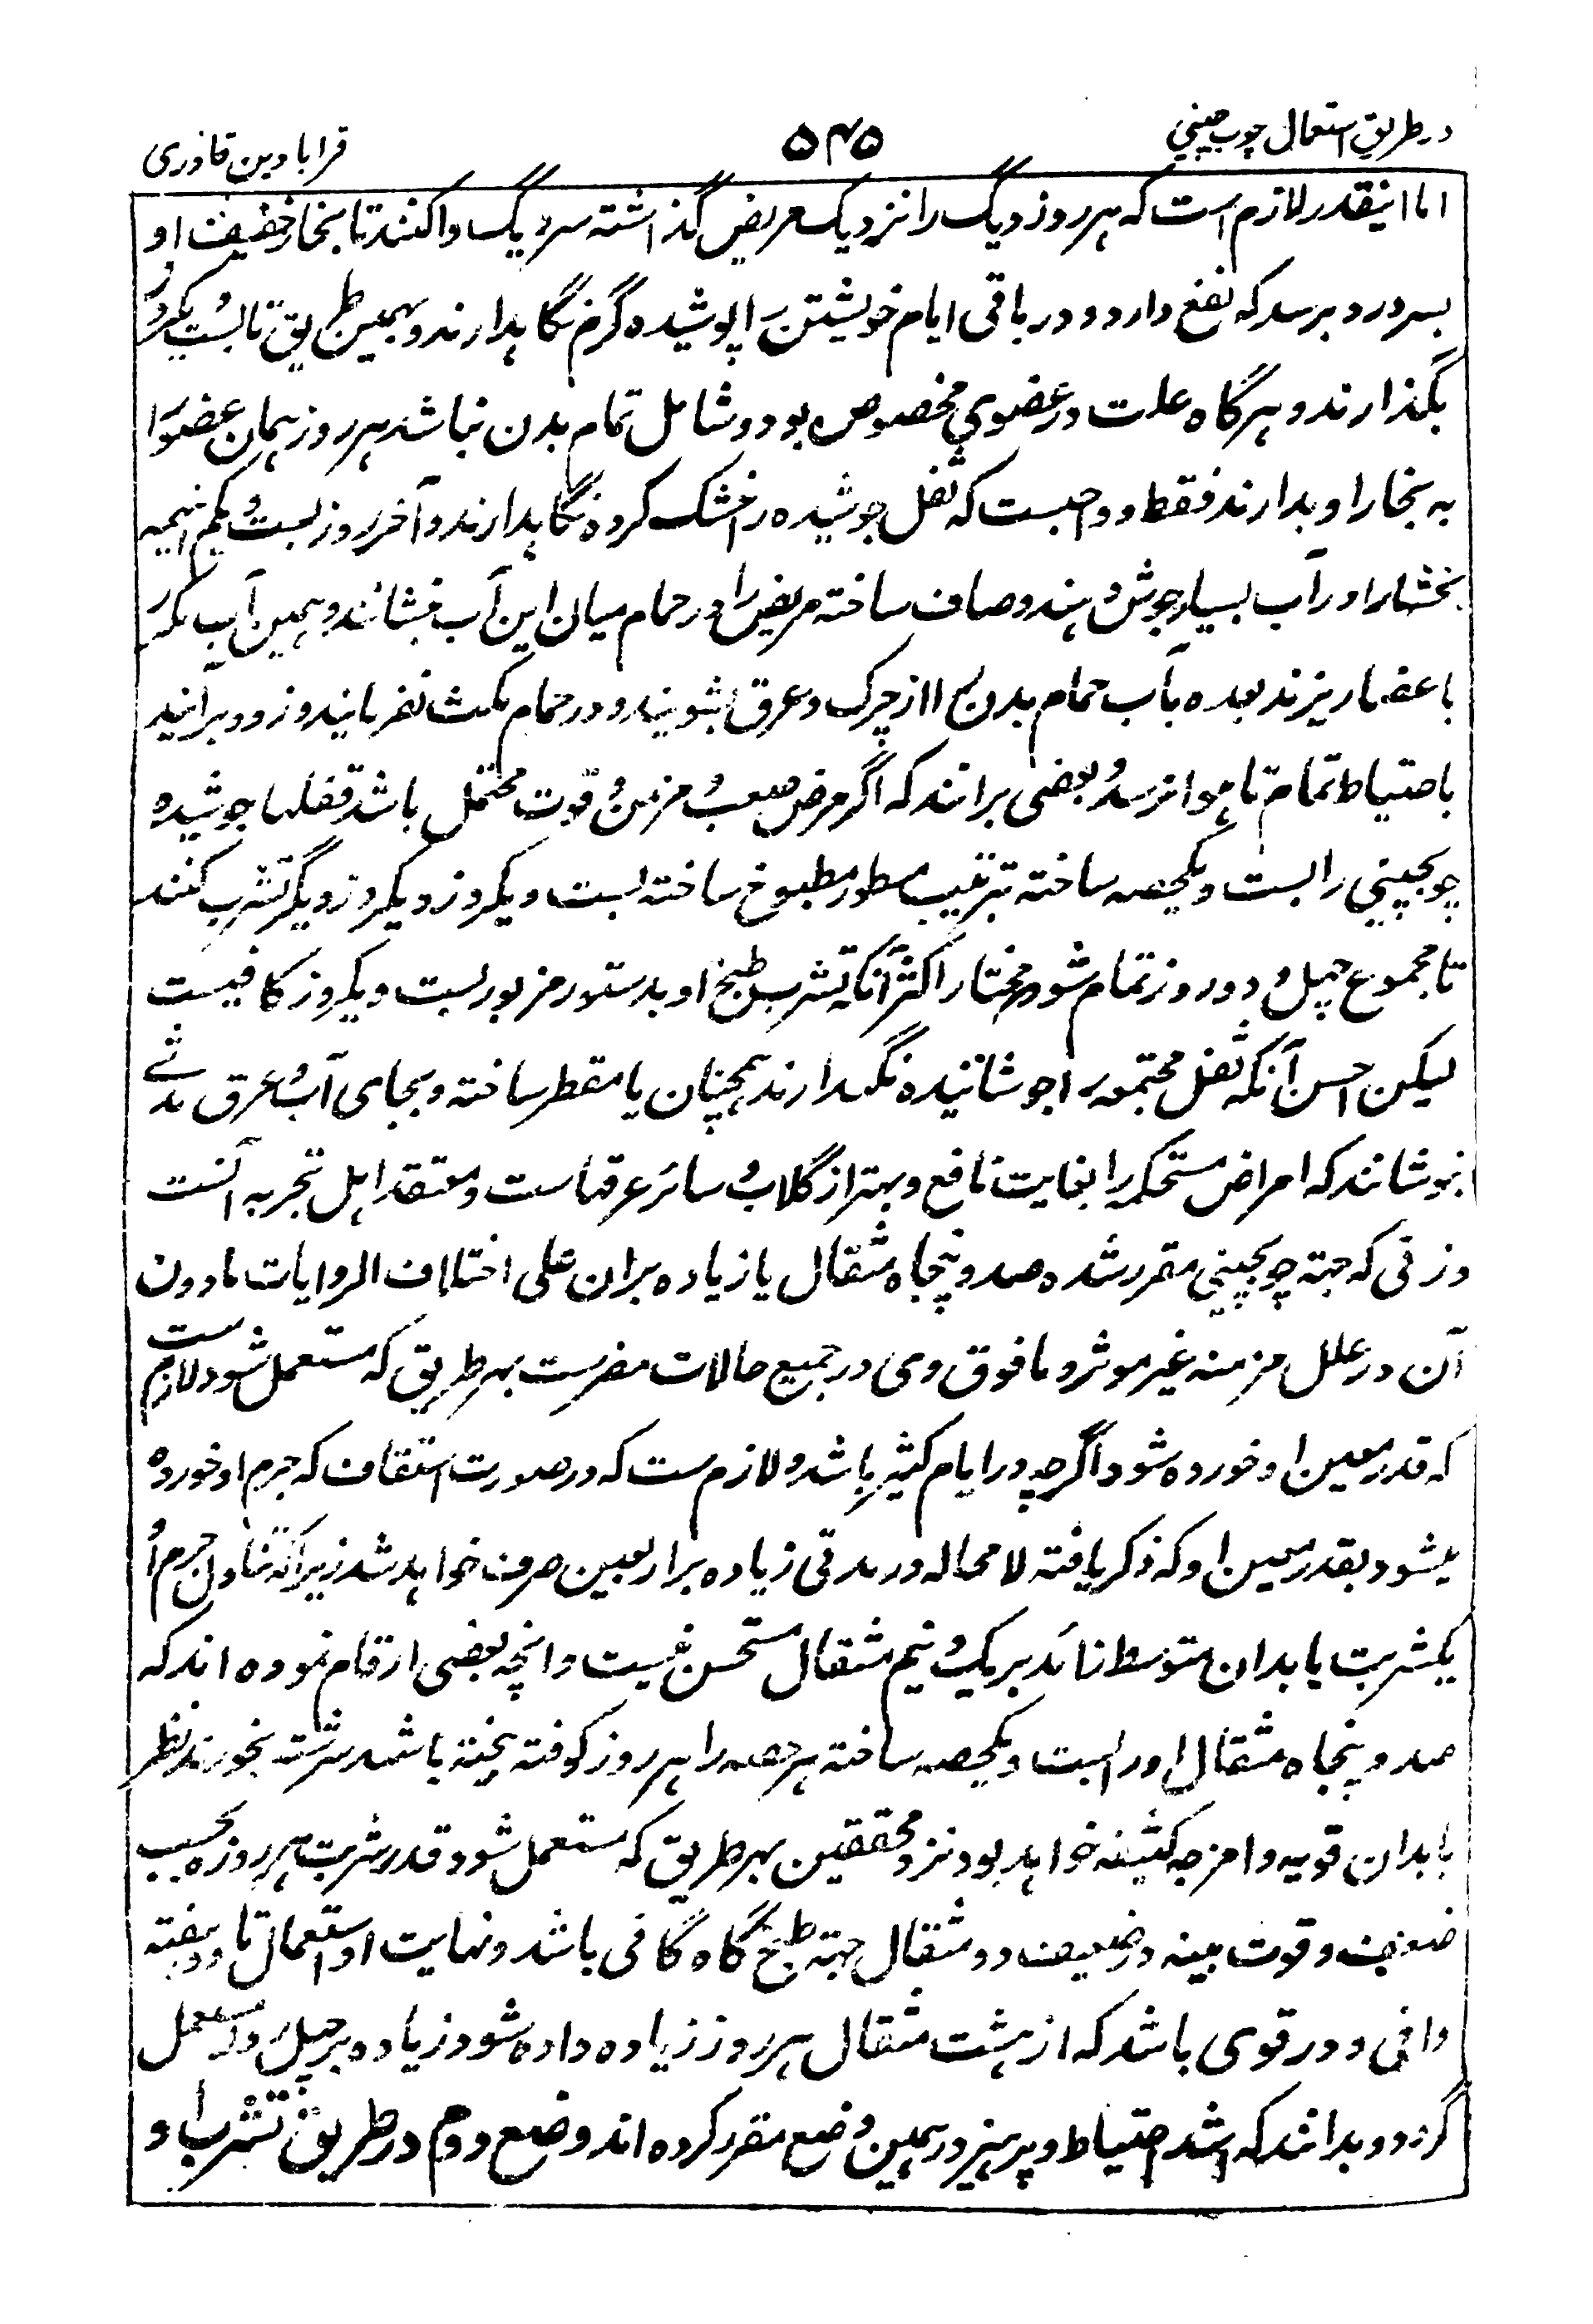 در طریق استعمال چوب چینی
۵۴۵
قرابادین قادری
اما اینقدر لازم است که هر روز دیگ را نزدیک مریض گذاشته سر دیگ وا کنند تا بخار خفیف او
بسر و رو برسد که نفع دارد و در باقی ایام خویشتن را پوشیده گرم نگاهدارند و بهمین طریق تا بست یکروز
بگذارند و هرگاه علت در عضوی مخصوص بود و شامل تمام بدن نباشد هر روز همان عضو را
به بخار او بدارند فقط و واجبست که ثفل جوشیده را خشک کرده نگاهدارند و آخر روز بست و یکم اینهمه
بخشها را در آب بسیار جوش دهند و صاف ساخته مریض را در حمام میان این آب بنشانند و همین آب مکرر
باعضا ریزند بعده بآب حمام بدن را از چرک و عرق بشویند و در حمام مکث نفرمایند و زود برآیند
باحتیاط تمام تا هوا نرسد و بعضی برانند که اگر مرض صعب و مزمن و قوت محتمل باشد ثفلها جوشیده
چوبچینی را بست و یکحصه ساخته بترتیب مسطور مطبوخ ساخته بست و یکروز دیگر تشرب کنند
تا مجموع چهل و دو روز تمام شود و مختار اکثر آنکه تشرب طبخ او بدستور مزبور بست و یکروز کافیست
لیکن احسن آنکه ثفل مجتمعه را جوشانیده نگهدارند همچنان یا مقطر ساخته و بجای آب و عرق مدتے
بنوشانند که امراض مستحکمه را بغایت نافع و بهتر از گلاب و سائر عرقهاست و معتقد اهل تجربه آنست
وزنی که جهته چوبچینی مقرر شده صد و پنجاه مثقال یا زیاده بران علی اختلاف الروایات مادون
آن در علل مزمنه غیر موثر و مافوق وی در جمیع حالات مضرست بهر طریق که مستعمل شود لازم ست
که قدر معین او خورده شود اگرچه در ایام کثیر باشد و لازم ست که در صورت استفاف که جرم او خورده
میشود بقدر معین او که ذکر یافته لا محاله در مدتی زیاده بر اربعین صرف خواهد شد زیرا که تناول جرم او
یکشربت یا بدان متوسط زائد بر یک و نیم مثقال مستحسن نیست و انچه بعضی ارقام نموده اند که
صد و پنجاه مثقال او را بست و یکحصه ساخته هر حصه را هر روز کوفته بیخته با شهد سرشته بخورند نظر
بابدان قویه و امزجه کثیفه خواهد بود نزد محققین بهر طریق که مستعمل شود قدر شربت هر روزه بحسب
ضعف و قوت بینه و ضعیف دو مثقال جهته طبخ گاه گافی باشد و نهایت او استعمال تا دو هفته
وافی و در قوی باشد که از هشت مثقال هر روز زیاده داده شود و زیاده بر چهل روز مستعمل
گردد و بدانند که اشد احتیاط و پرهیز در همین وضع مقرر کرده اند وضع دوم در طریق تشرب او